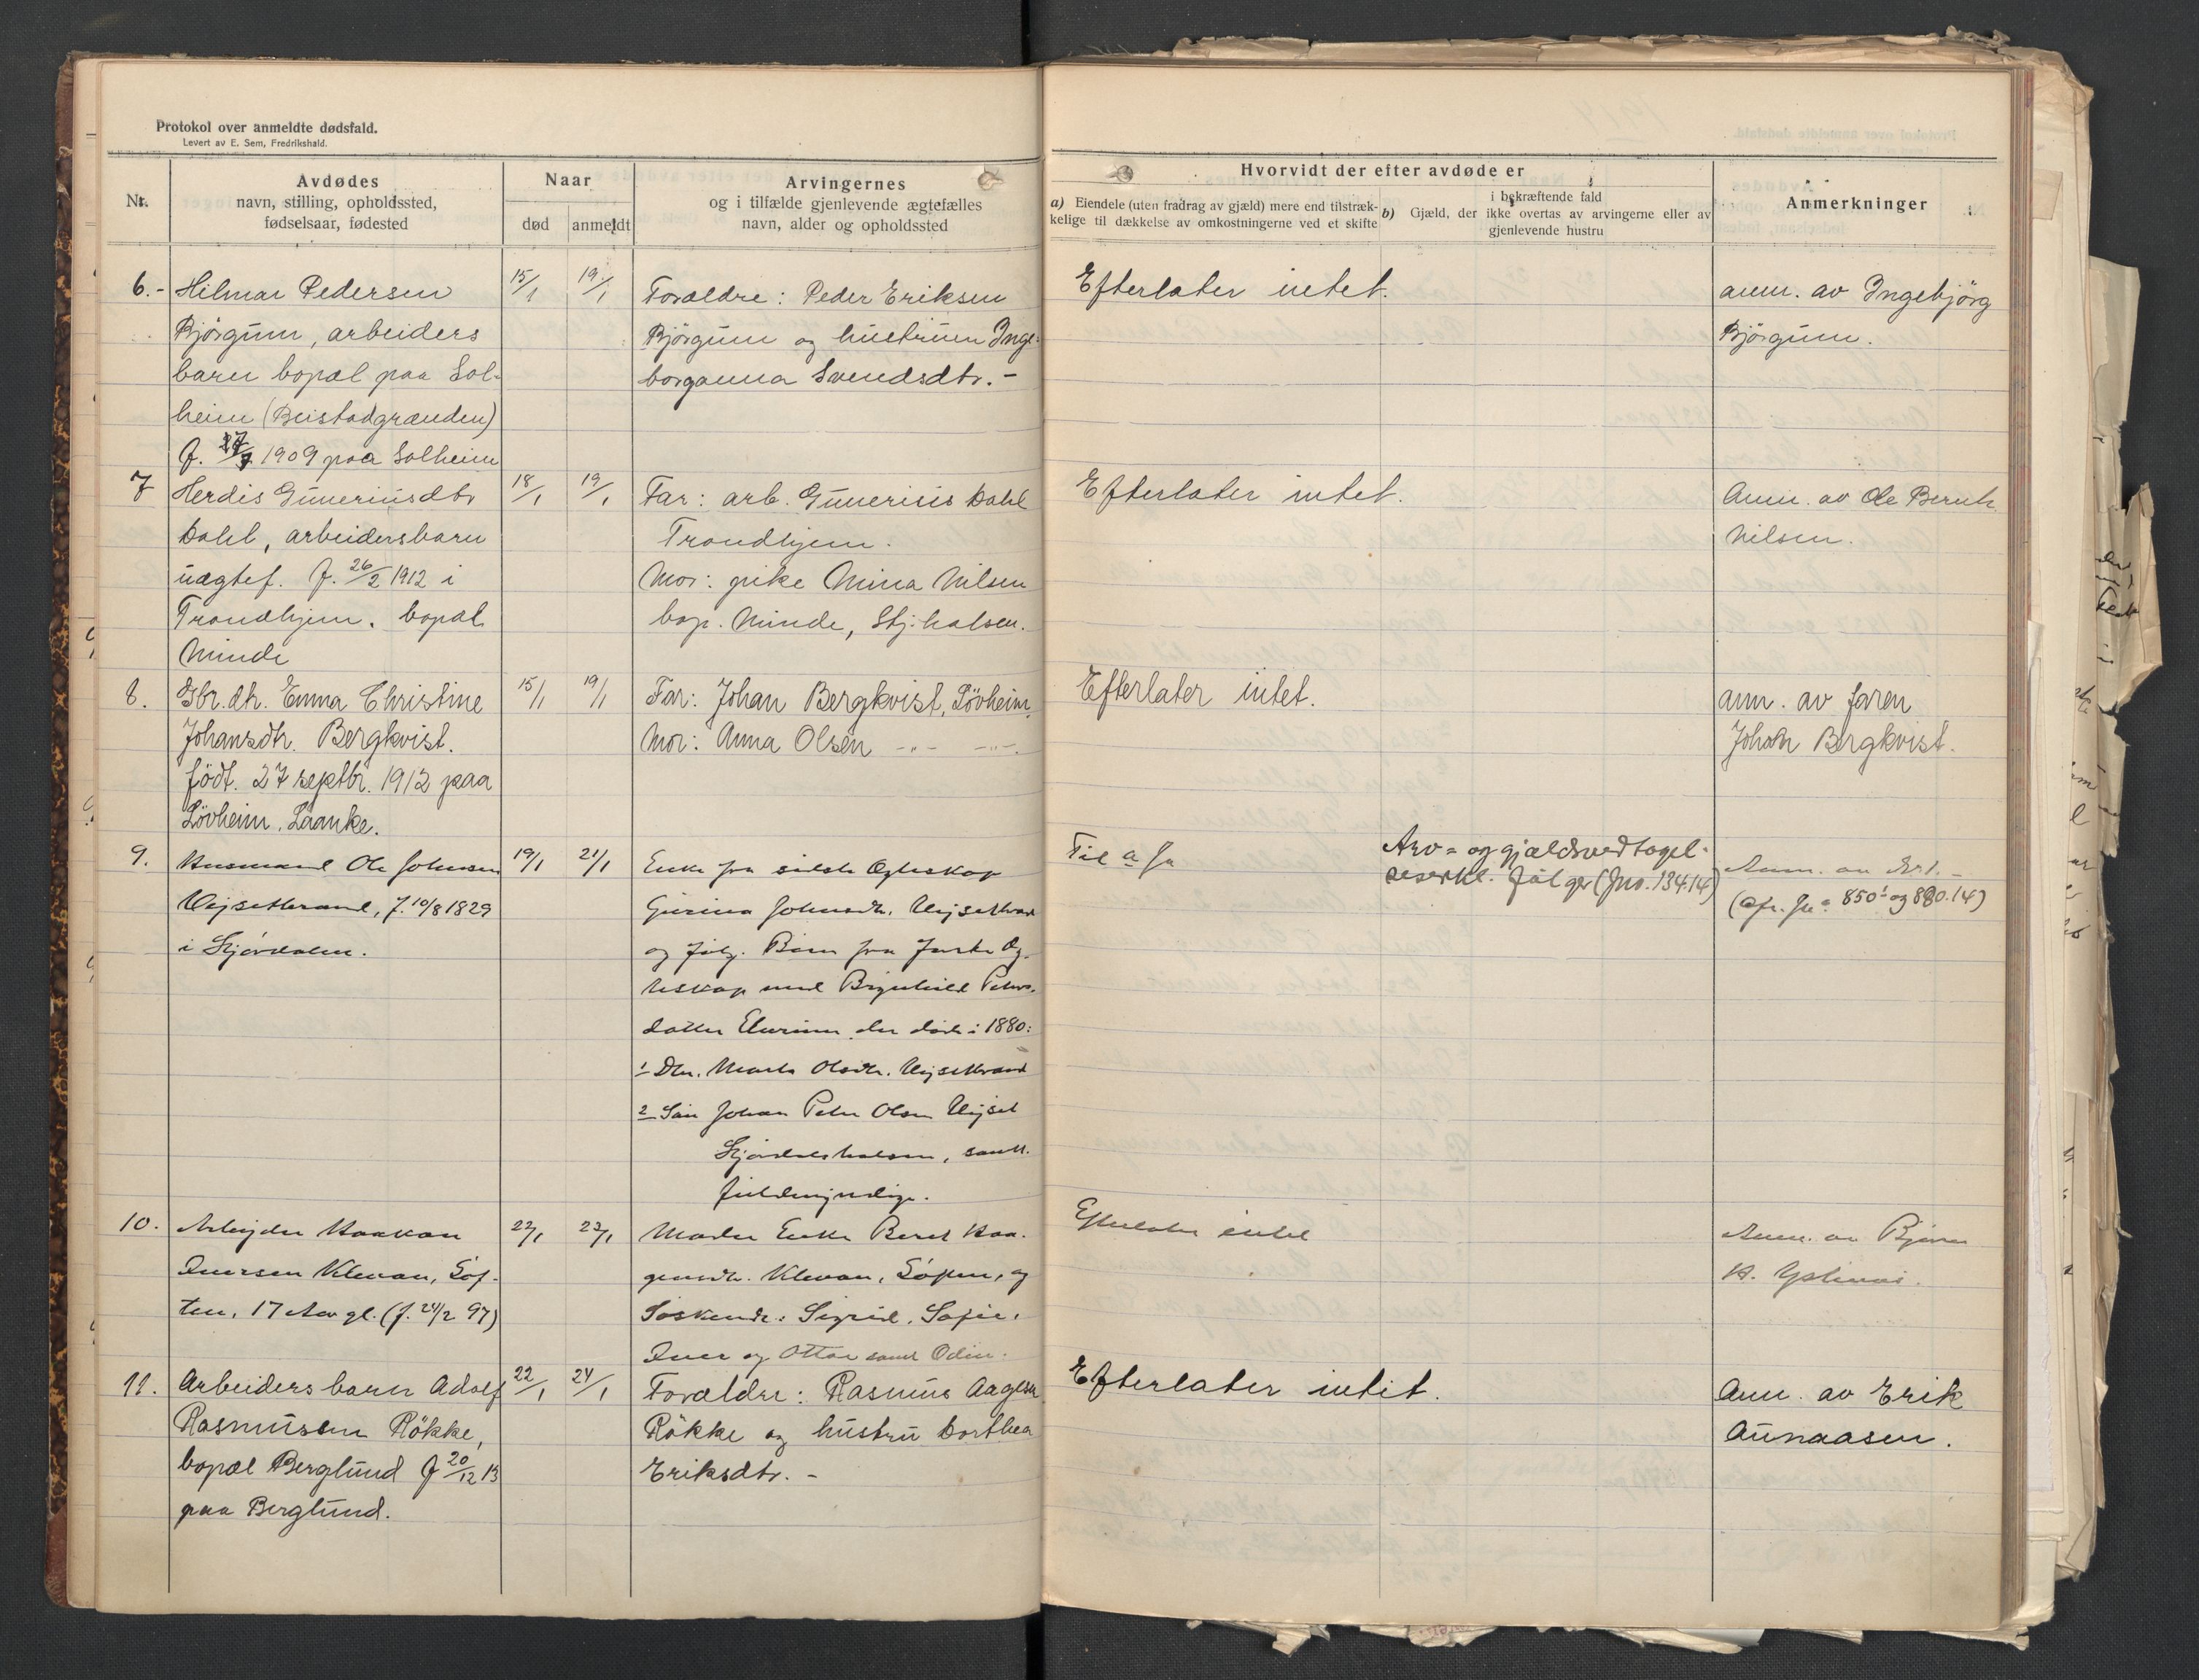 Protokol over anmeldte dødsfald.
Levert av E. Sem, Fredrikshald.
Nr.
Avdødes
navn, stilling, opholdssted,
fødselsaar, fødested
Naar
død
anmeldt
Arvingernes
og i tilfælde gjenlevende ægtefælles
navn, alder og opholdssted
Hvorvidt der efter avdøde er
a) Eiendele (uten fradrag av gjæld) mere end tilstræk-
kelige til dækkelse av omkostningerne ved et skifte
b) Gjæld, der
i bekræftende fald
ikke overtas av arvingerne eller av
gjenlevende hustru
Anmerkninger
6.-
Hilmar Pedersen
Bjørgum, arbeiders
barn bopæl paa Sol-
heim (Beistadgranden)
f. 1909 paa Solheim
15/1
19/1
Forældre: Peder Eriksen
Bjørgum og hustruen Inge-
borganna Svendsdtr. -
Efterlater intet.
anm. av Ingebjørg
Bjørgum.
7
Herdis Guneriusdtr
Dahl, arbeidersbarn
uægtef. f. 26/2 1912 i
Trondhjem. bopæl
Minde
18/1
19/1
Far: arb. Gunerius Dahl
Trondhjem.
Mor: pike Mina Nilsen
bop. Minde, Stj.halsen.
Efterlater intet.
Anm. av Ole Bernh.
Nilsen.
8.
Gbr. dtr. Emma Christine
Johansdtr. Bergkvist.
født. 27 septbr. 1912 paa
Løvheim. Laanke.
15/1
19/1
Far: Johan Bergkvist, Løvheim.
Mor: Anna Olsen -"- -"-.
Efterlater intet.
anm. av faren
Johan Bergkvist.
9.
Husmand Ole Johnsen
Vejsettrand, f. 10/8 1829
i Stjørdalen.
19/1
21/1
Enke fra sidste Ægteskap
Gurina Johnsdtr. Vejsettrand
og følg. Børn fra første Æg-
teskap med Brynhild Peters-
datter, der døde i 1880:
1 Dtr. Marta Olsdtr. Vejsettrand
2 Søn Johan Peter Olsen Vejset
Stjørdalshalsen, samtl.
fuldmyndige.
Til a Ja
Arv- og gjældsvedtagel-
seserkl. følger (Jno. 134.14)
Anm. av No 1. -
(Cfr. Jno 850 og 880.14)
10.
Arbejder Haakon
Iversen Klevan, Lof-
ten, 17 Aar gl. (f. 24/2 97)
22/1
23/1
Moder Enke Beret Haa-
gensdtr. Klevan, Loften, og
Søskende: Sigrid, Sofie,
Iver og Ottar samt Odin.
Efterlater intet
Anm. av Bjarne
H. Ystines.
11.
Arbeiders barn Adolf
Rasmussen Røkke,
bopæl Berglund f 20/12 13
paa Berglund.
22/1
24/1
Forældre: Rasmus Aagesen
Røkke og hustru Dorthea
Eriksdtr. -
Efterlater intet.
Anm. av Erik
Aunaasen.